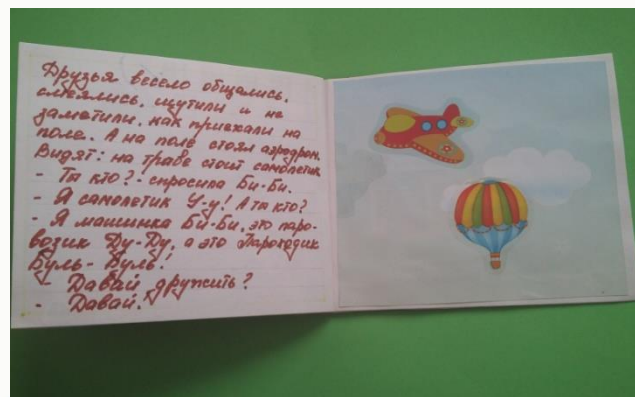 Друзья весело общались,
смеялись, шутили и не
заметили, как приехали на
поле. А на поле стоял аэродром.
Видят: на траве стоит самолетик
- Ты кто? - спросила Би-Би.
- Я самолетик У-у! А ты кто?
- Я машинка Би-Би, это паро-
возик Ду-Ду, а это Пароходик
Буль-Буль!
- Давай дружить?
- Давай!